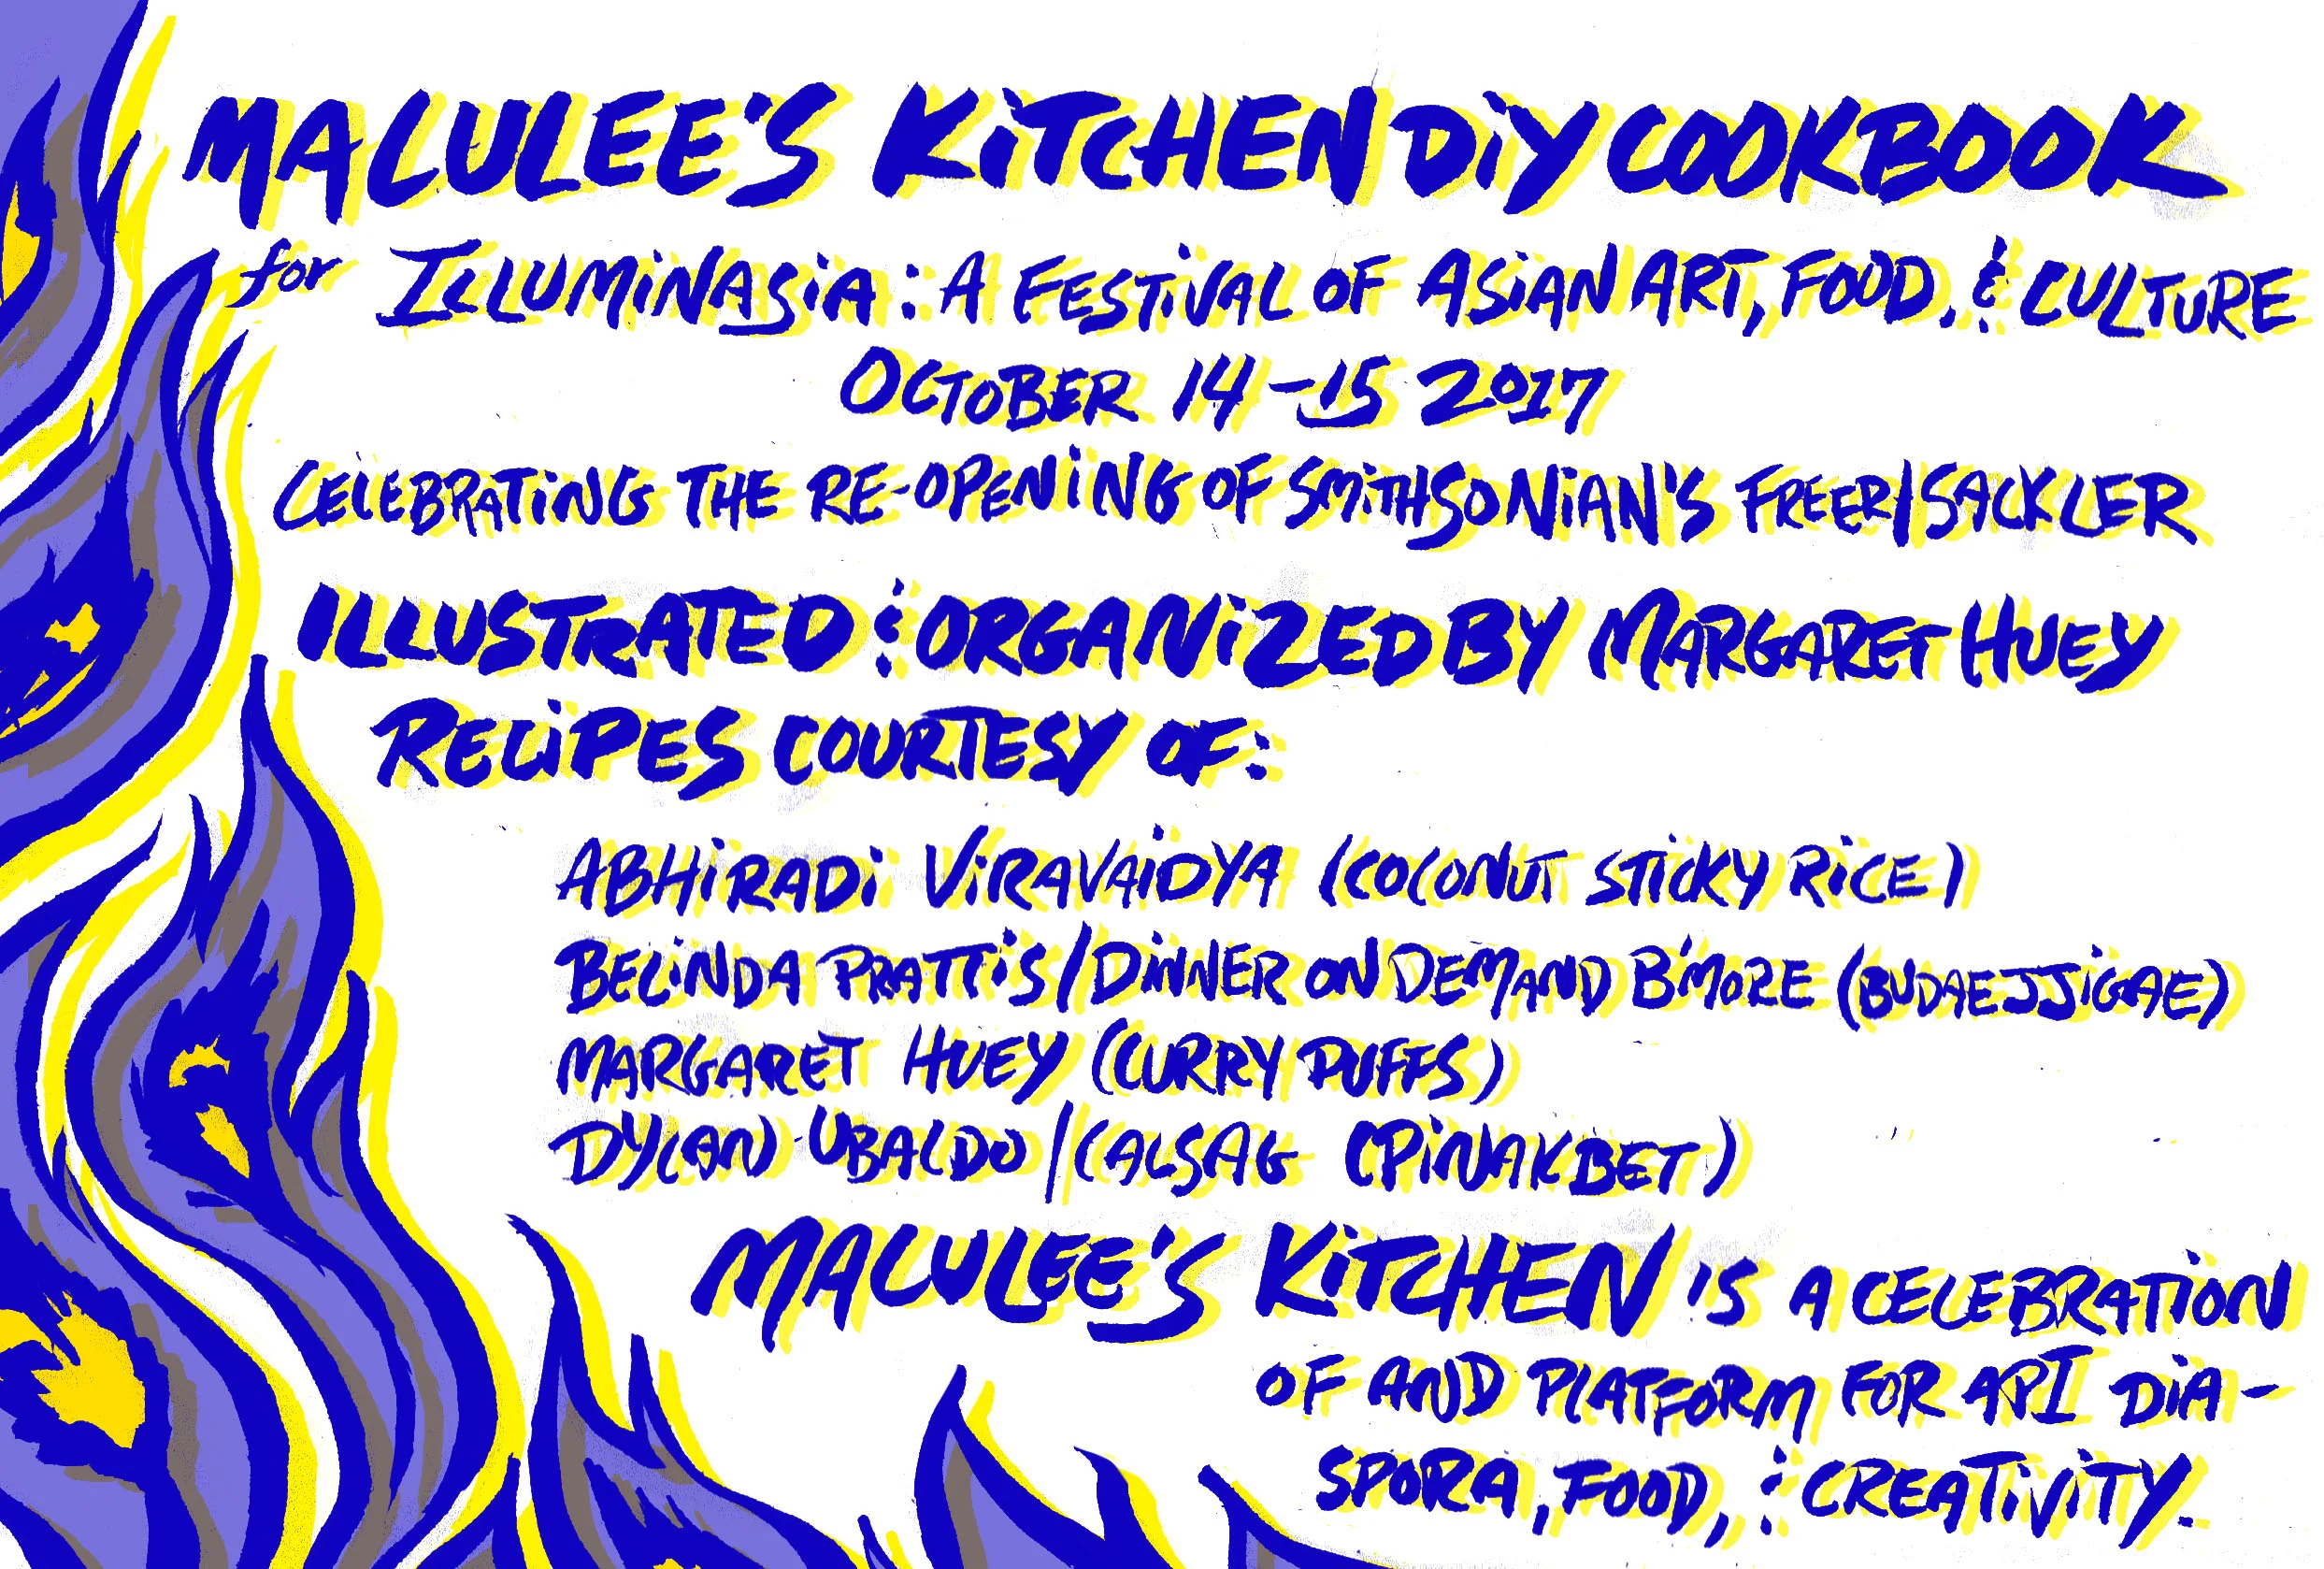 MALULEE'S KiTCHEN DiY COOKBOOK
for ILLUMiNASiA: A FESTiVAL OF ASiAN ART, FOOD, & CULTURE
OCTOBER 14-15 2017
CELEBRATiNG THE RE-OPENiNG OF SMiTHSONiAN'S FREER/SACKLER
ILLUSTRATED & ORGANiZED BY MARGARET HUEY
RECiPES COURTESY OF:
ABHiRADi ViRAVAiDYA (COCONUT STiCKY RiCE)
BELiNDA PRATTiS/DiNNER ON DEMAND B'MORE (BUDAE JJiGAE)
MARGARET HUEY (CURRY PUFFS)
DYLAN UBALDO/CALSAG (PiNAKBET)
MALULEE'S KiTCHEN iS A CELEBRATiON
OF AND PLATFORM FOR API DiA-
SPORA, FOOD, & CREATiViTY.